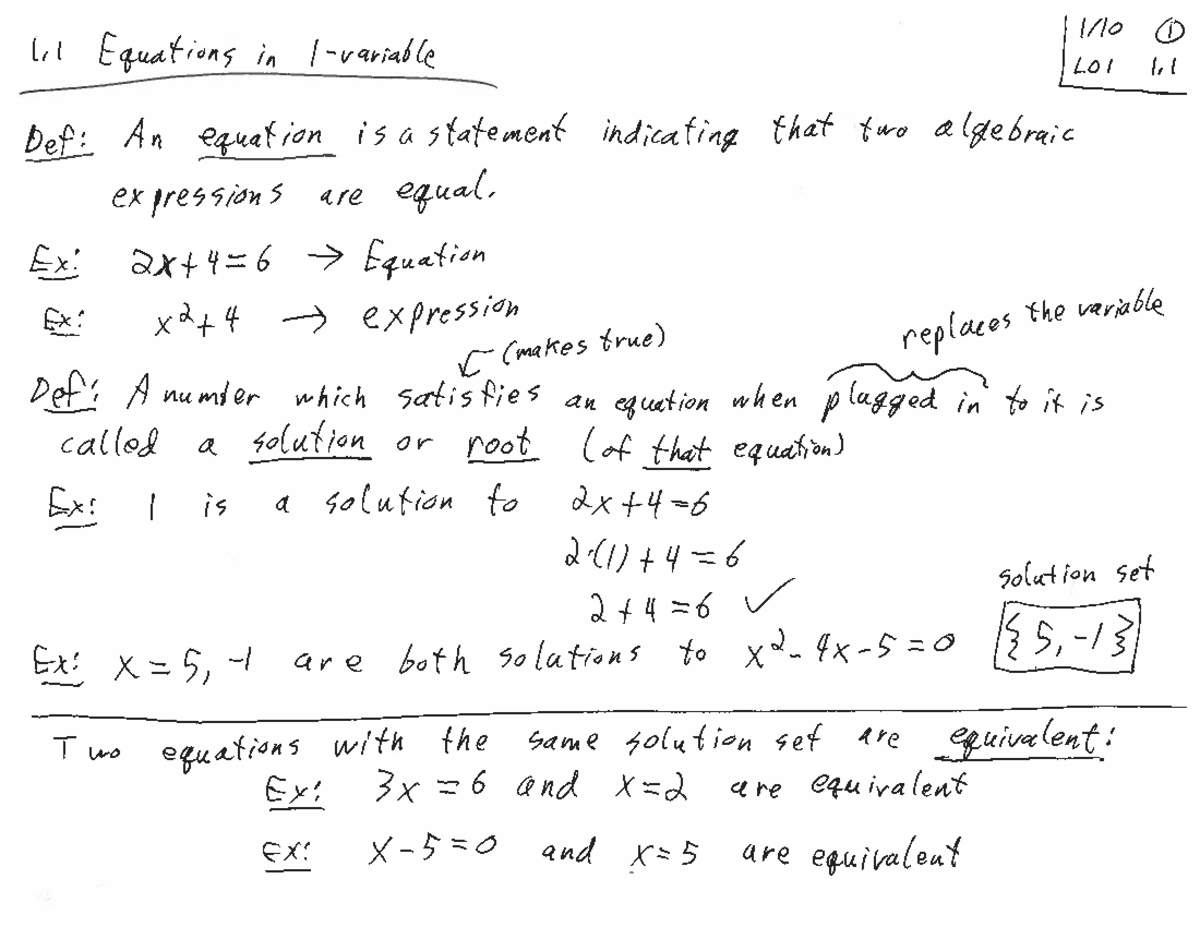 1.1 Equations in 1-variable
1/10 ①
L01 1.1
Def: An equation is a statement indicating that two algebraic
expressions are equal.
Ex: 2x+4=6 → Equation
Ex: x²+4 → expression
(makes true)
replaces the variable
Def: A number which satisfies an equation when plugged in to it is
called a solution or root (of that equation)
Ex: 1 is a solution to 2x+4=6
2·(1)+4=6
2+4=6 ✓
solution set
Ex: x=5,-1 are both solutions to x²-4x-5=0 {5,-1}
Two equations with the same solution set are equivalent:
Ex: 3x=6 and x=2 are equivalent
Ex: x-5=0 and x=5 are equivalent